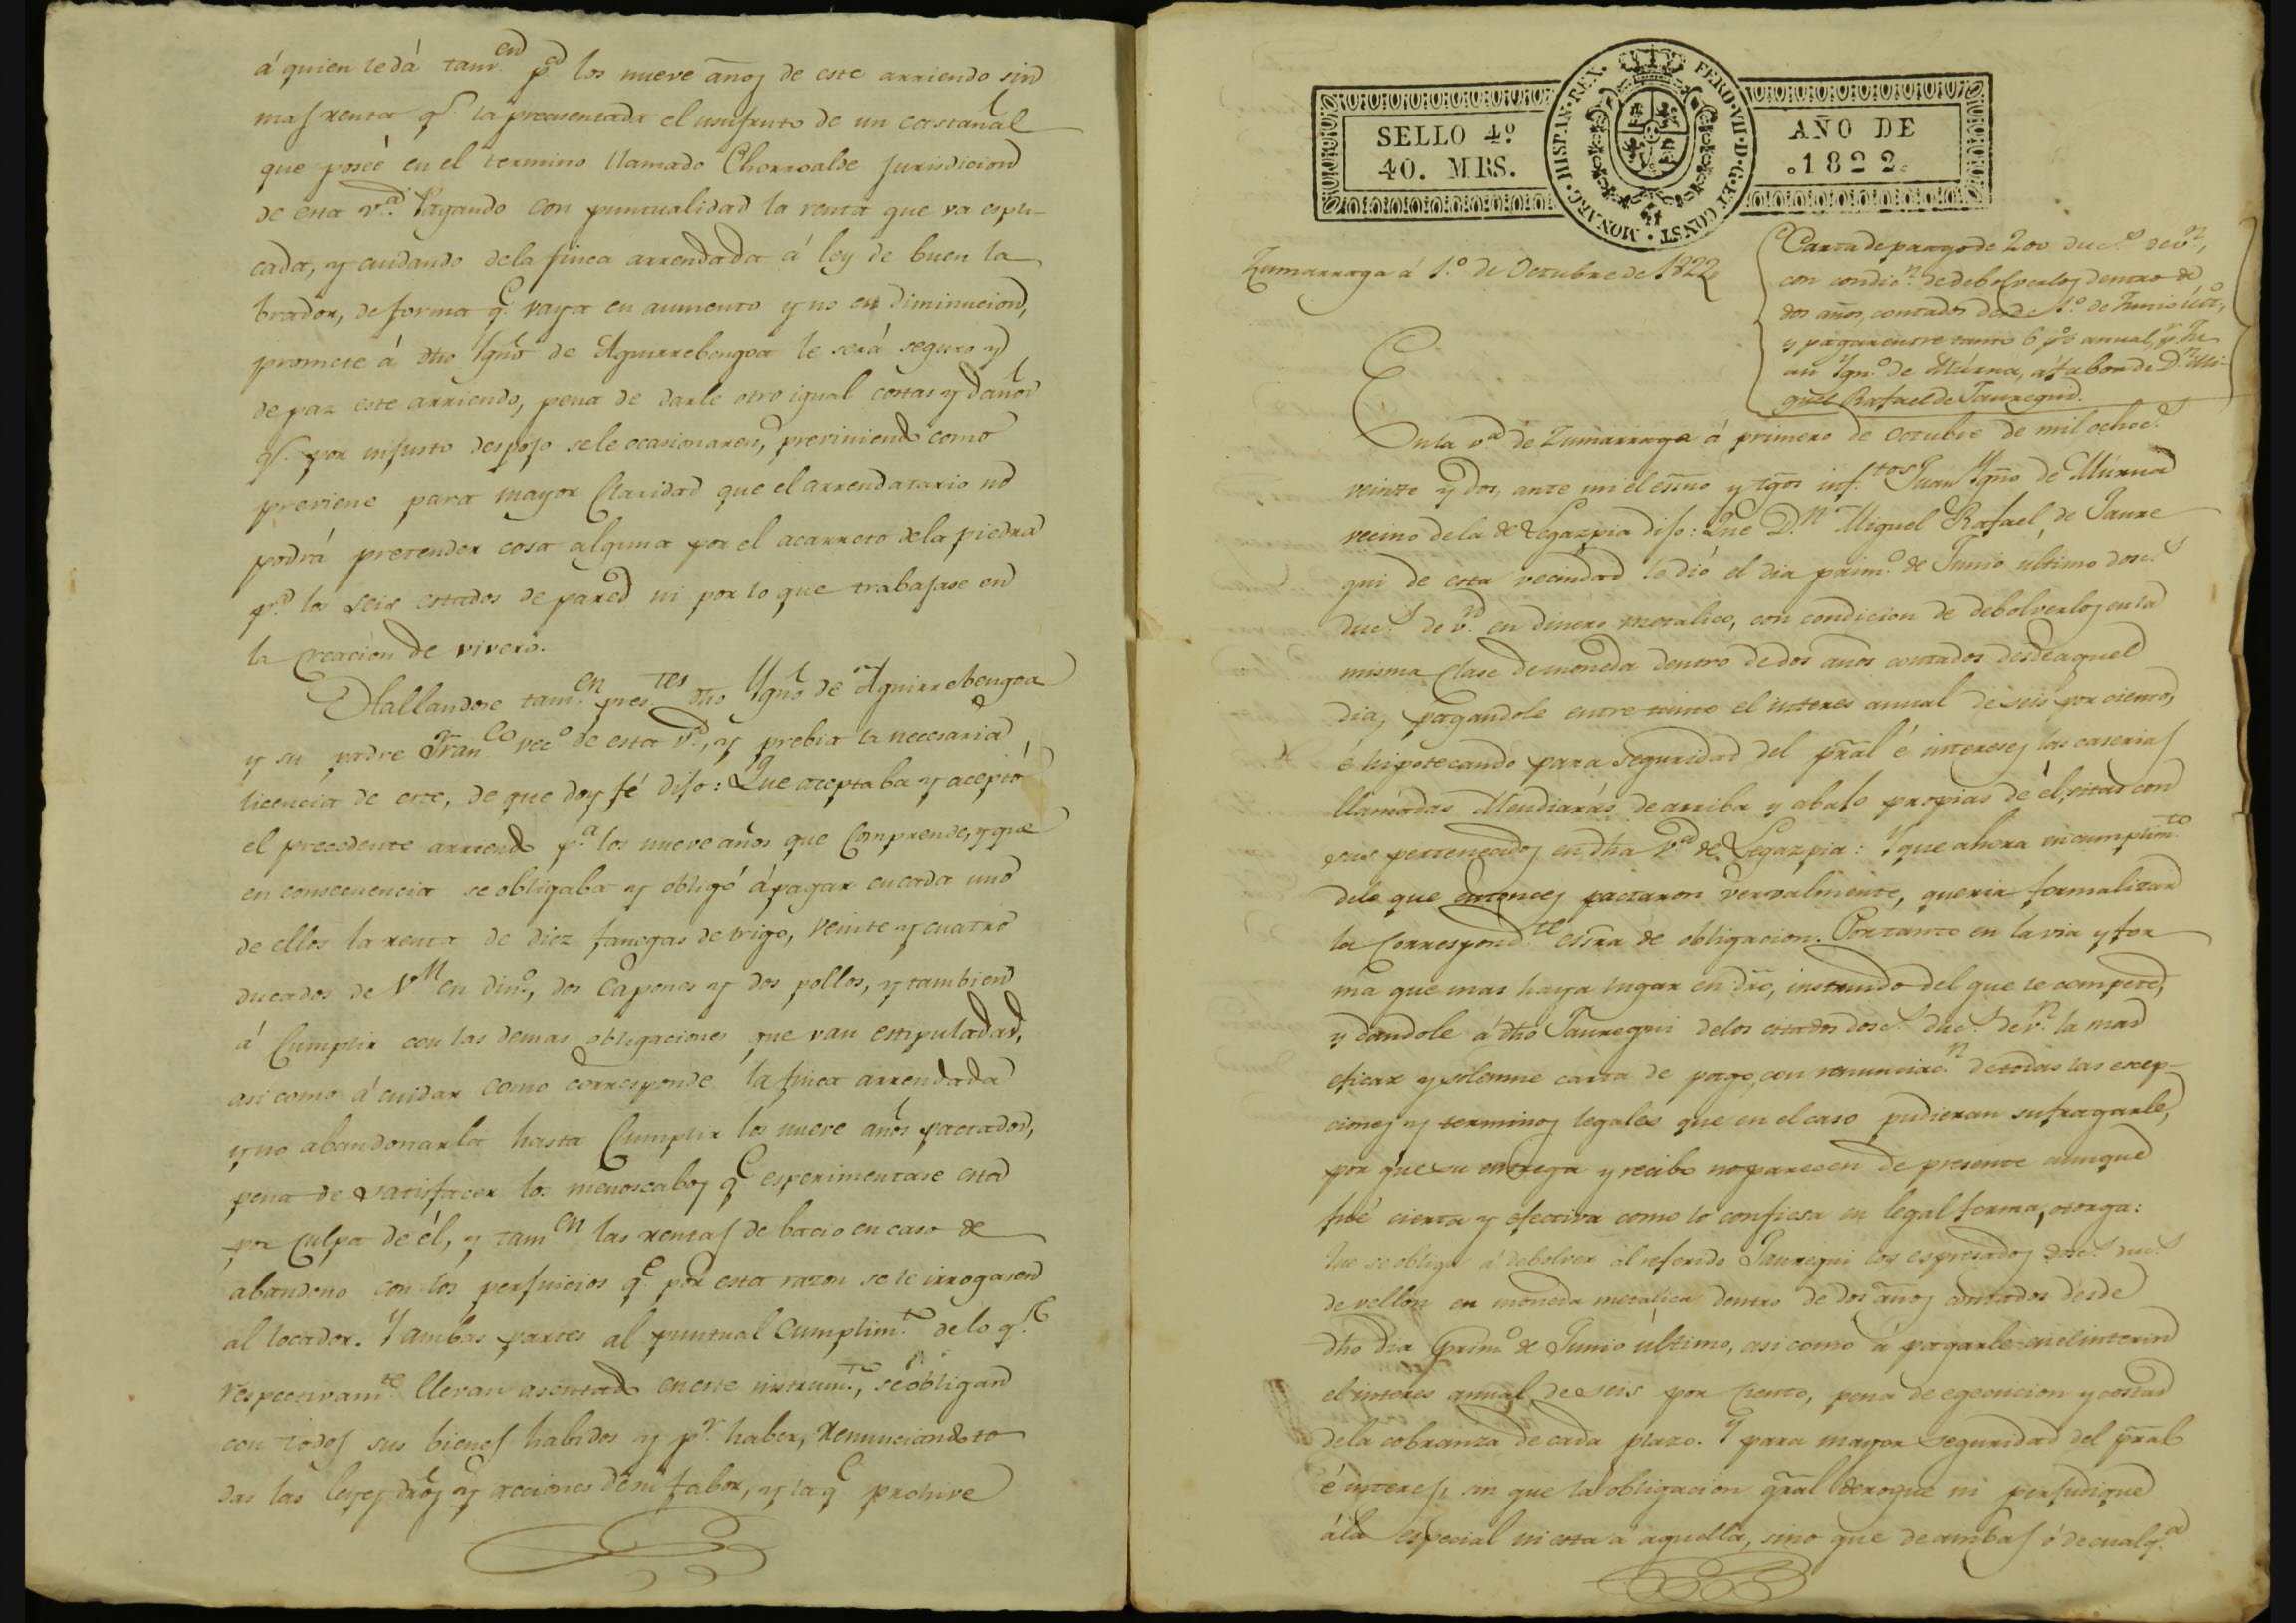 á quien le dá tam.en p.a los nueve años de este arriendo sin
mas renta q.e la precuentada el usufruto de un castañal
que poseé en el termino llamado Chorroalde Jurisdicion
de esta v.a Pagando con puntualidad la renta que va espli-
cada, y cuidando dela finca arrendada á ley de buen la
brador, de forma q.e vaya en aumento y no en diminucion,
promete á dho Ygno de Aguirrebengoa le será seguro y
de paz este arriendo, pena de darle otro igual costas y daños
q.e por injusto despojo sele ocasionaren, previniendo como
previene para mayor Claridad que el arrendatario no
podrá pretender cosa alguna por el acarreto dela piedra
p.a los seis estados de pared ni por lo que trabajase en
la creación de vivero.
Hallandose tam.en pres.tes dho Ygno de Aguirrebengoa
y su padre Fran.co vec.o de esta v.a, y prebia la necesaria
licencia de este, de que doy fé dijo: Que aceptaba y aceptó
el precedente arriendo p.a los nueve años que Comprende, y que
en consecuencia se obligaba y obligó á pagar en cada uno
de ellos la renta de diez fanegas de trigo, veinte y cuatro
ducados de V.n en din.o, dos Capones y dos pollos, y tambien
á Cumplir con las demas obligaciones que van estipuladas,
asi como á cuidar como corresponde la finca arrendada
y no abandonarla hasta Cumplir los nueve años pactados,
pena de satisfacer los menoscabos q.e esperimentase esta
por Culpa de él, y tam.en las rentas de bacio en caso de
abandono con los perjuicios q.e por esta razon se le irrogasen
al locador. Y ambas partes al puntual Cumplim.to delo q.e
respectivam.te llevan asentado en este instrum.to, se obligan
con todos sus bienes habidos y p.r haber, Renunciando to
das las leyes dros y acciones de su fabor, y la q.e prohive
SELLO 4º
40. MRS.
MONARC. HISPAN. REX. FERD. VII. D. G. ET CONST.
AÑO DE
1822
Zumarraga á 1.o de Octubre de 1822
Carta de pago de 200 duc.s de v.n,
con condic.n de debolverlos dentro de
dos años, contados desde 1.o de Junio últ.o,
y pagar entre tanto 6 p% annual, p.r Ju
an Ygn.o de Múrua, á fabor de D.n Mi-
guel Rafael de Jauregui.
En la v.a de Zumarraga á primero de Octubre de mil ochoc.s
veinte y dos, ante mi el esno y tgos inf.tos Juan Ygno de Múrua
vecino de la de Legazpia dijo: Que D.n Miguel Rafael de Jaure
gui de esta vecindad le dió el dia prim.o de Junio último dosc.s
duc.s de v.n en dinero metalico, con condicion de debolverlos en la
misma Clase de moneda dentro de dos años contados desde aquel
dia, pagandole entre tanto el interes annual de seis por ciento,
é hipotecando para seguridad del pral é intereses las caserias
llamadas Mendiarás de arriba y abajo propias de él, sitas con
sus pertenecidos en dha v.a de Legazpia: Y que ahora en cumplim.to
delo que entonces pactaron vervalmente, queria formalizar
la Correspond.te essra de obligacion. Por tanto en la via y for
ma que mas haya lugar en dro, instruido del que le compete,
y dandole á dho Jauregui delos citados dosc.s duc.s de v.n la mas
eficaz y solemne carta de pago, con renunciac.n de todas las excep-
ciones y terminos legales que en el caso pudieran sufragarle,
por que su entrega y recibo no parecen de presente aunque
fué cierta y efectiva como lo confiesa en legal forma, otorga:
Que se obliga á debolver al referido Jauregui los espresados dosc.s duc.s
de vellon en moneda metalica dentro de dos años contados desde
dho dia prim.o de Junio último, asi como á pagarle en el interin
el interes annual de seis por Ciento, pena de egecucion y costas
dela cobranza de cada plazo. Y para mayor seguridad del pral
é interes, sin que la obligacion gral derogue ni perjudique
á la especial ni esta á aquella, sino que de ambas ó de cualq.a